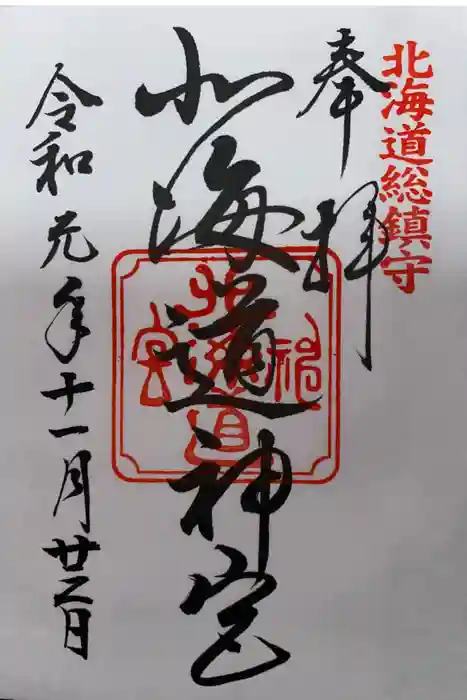 北海道総鎮守
奉拝
北海道神宮
北海道
神
宮
令和元年十一月廿二日